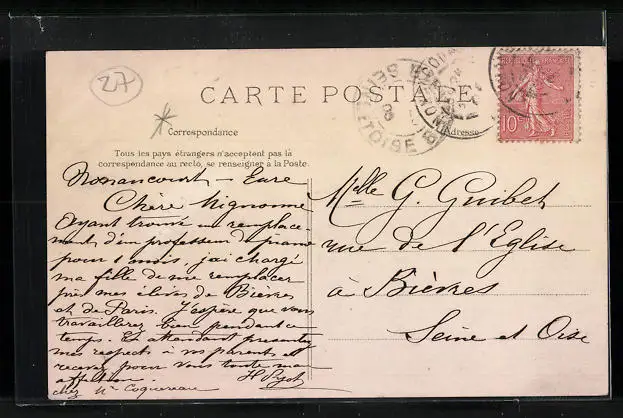 27
CARTE POSTALE
Correspondance
Adresse
Tous les pays étrangers n'acceptent pas la
correspondance au recto, se renseigner à la Poste.
10
Nonancourt - Eure
Chère Mignonne
Ayant trouvé un remplace-
ment, d'un professeur de piano
pour 1 mois, j'ai chargé
ma fille de me remplacer
près mes élèves de Bièvres
et de Paris. J'espère que vous
travaillerez bien pendant ce
temps. En attendant présentez
mes respects à vos parents et
recevez pour vous toute mon
affection.
chez Me Coquereau
Melle G. Guibet
rue de l'Eglise
à Bièvres
Seine et Oise